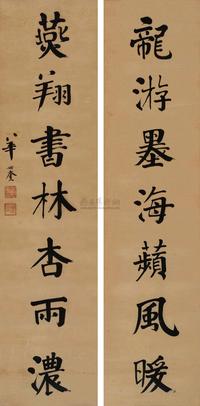 龍游墨海蘋風暖
燕翔書林杏雨濃
華世奎